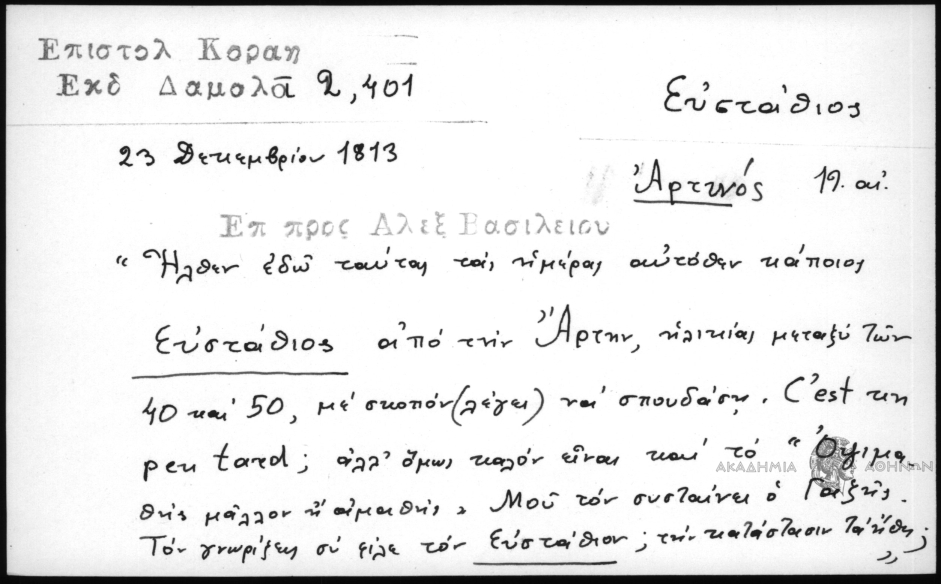 Επιστολ Κοραη
Εκδ Δαμαλᾶ 2,401
Εὐστάθιος
23 Δεκεμβρίου 1813
Ἀρτινός 19. αἰ.
Επ προς Αλεξ Βασιλειου
"Ἦλθεν ἐδῶ ταύτας τὰς ἡμέρας αὐτόθεν κάποιος
Εὐστάθιος ἀπό τὴν Ἄρτην, ἡλικίας μεταξύ τῶν
40 καί 50, μέ σκοπόν (λέγει) νά σπουδάσῃ. C'est un
peu tard; ἀλλ' ὅμως καλόν εἶναι καί τό "Ὀψιμα-
θής μᾶλλον ἤ ἀμαθής". Μοῦ τόν συσταίνει ὁ Γαζῆς.
Τόν γνωρίζεις σύ τόν Εὐστάθιον; τήν κατάστασιν τά ἤθη;"
ΑΚΑΔΗΜΙΑ ΑΘΗΝΩΝ